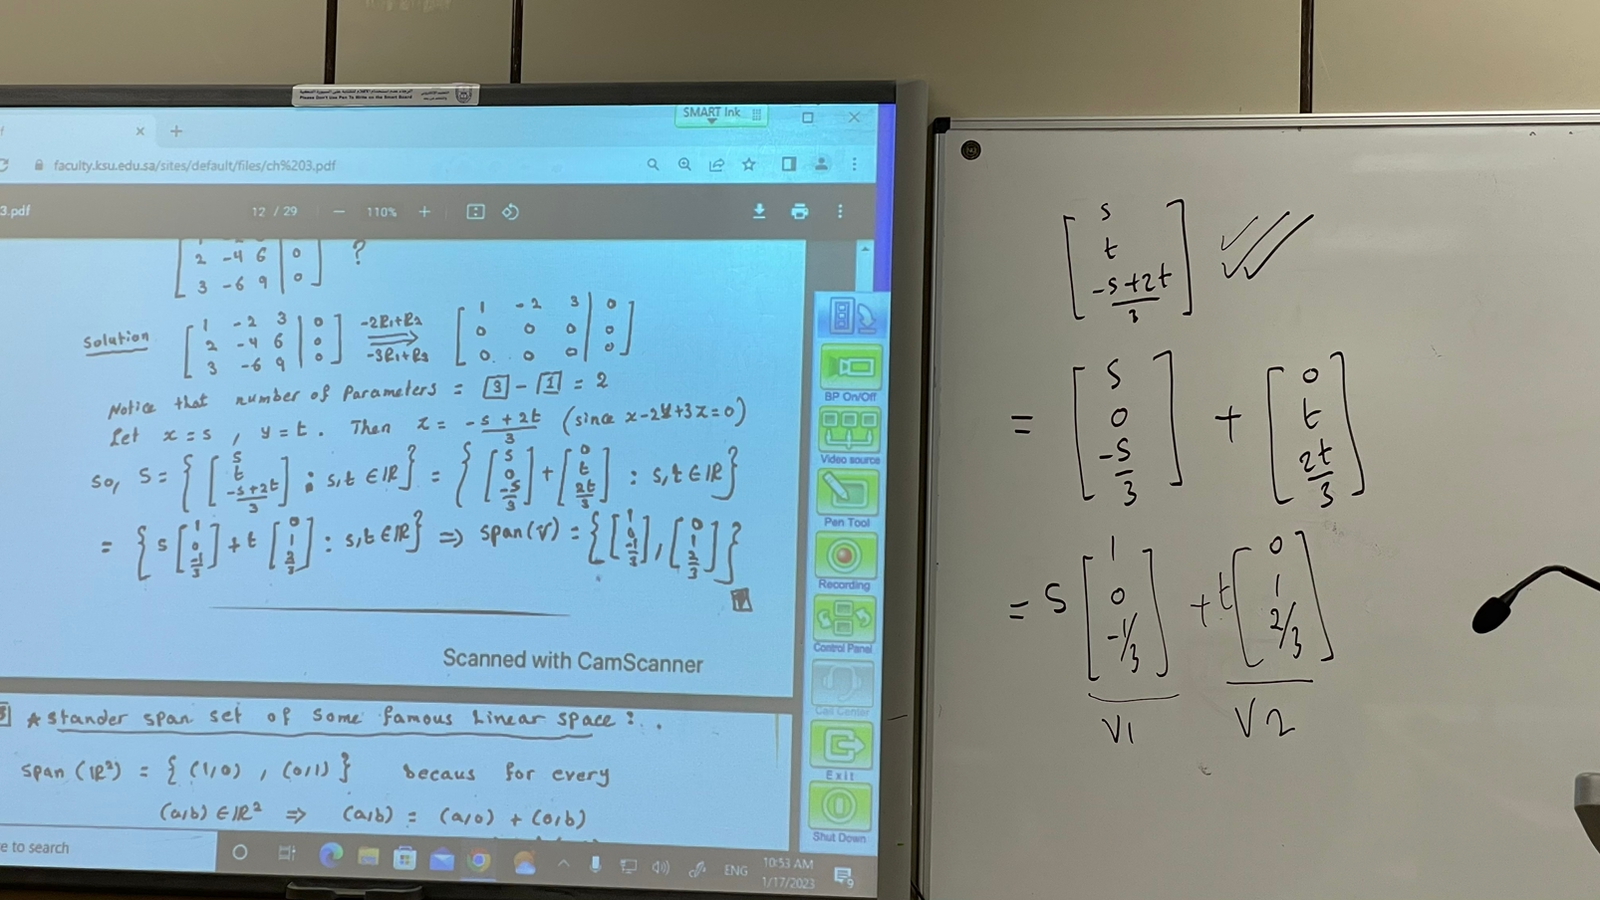 Please Don't Use Pen To Write on the Smart Board
SMART Ink
faculty.ksu.edu.sa/sites/default/files/ch%203.pdf
3.pdf
12 / 29
110%
2 -4 6 | 0
3 -6 9 | 0
?
Solution
1 -2 3 | 0
2 -4 6 | 0
3 -6 9 | 0
-2R1+R2
-3R1+R3
1 -2 3 | 0
0 0 0 | 0
0 0 0 | 0
Notice that number of Parameters = 3 - 1 = 2
Let x=s , y=t. Then z = -s+2t/3 (since x-2y+3z=0)
so, S = { [s t -s+2t/3] : s,t ∈ IR } = { [s 0 -s/3] + [0 t 2t/3] : s,t ∈ IR }
= { s [1 0 -1/3] + t [0 1 2/3] : s,t ∈ IR } => span(V) = { [1 0 -1/3] , [0 1 2/3] }
Scanned with CamScanner
* Stander span set of some famous Linear space :.
span (IR²) = { (1,0) , (0,1) } becaus for every
(a,b) ∈ IR² => (a,b) = (a,0) + (0,b)
BP On/Off
Video source
Pen Tool
Recording
Control Panel
Call Center
Exit
Shut Down
e to search
ENG
10:53 AM
1/17/2023
9
[s t -s+2t/3]
= [s 0 -s/3] + [0 t 2t/3]
= s [1 0 -1/3] + t [0 1 2/3]
V1 V2